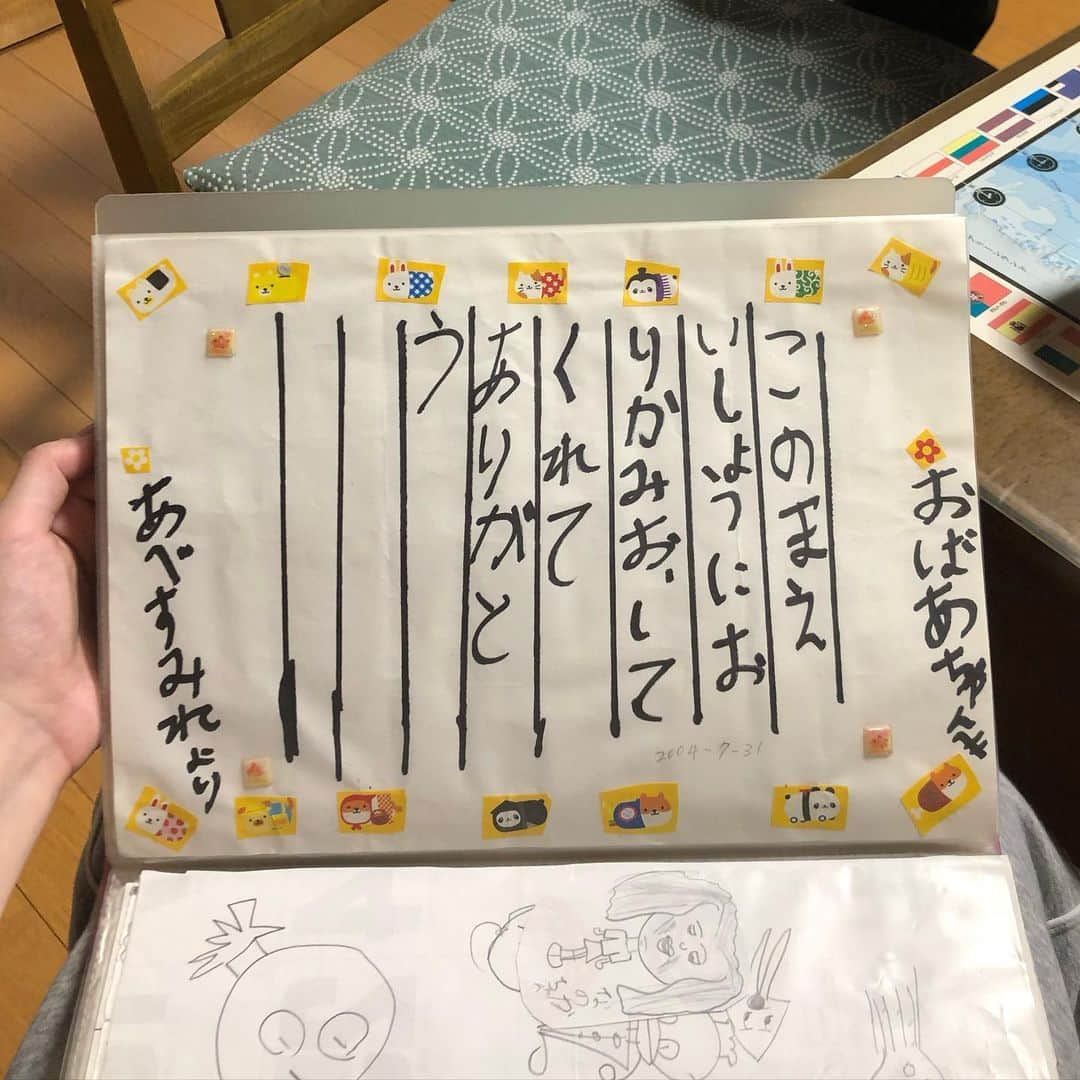 おばあちゃんえ
このまえ
いしようにお
りかみお、して
くれて
ありがと
う
あべすみれより
2004-7-31